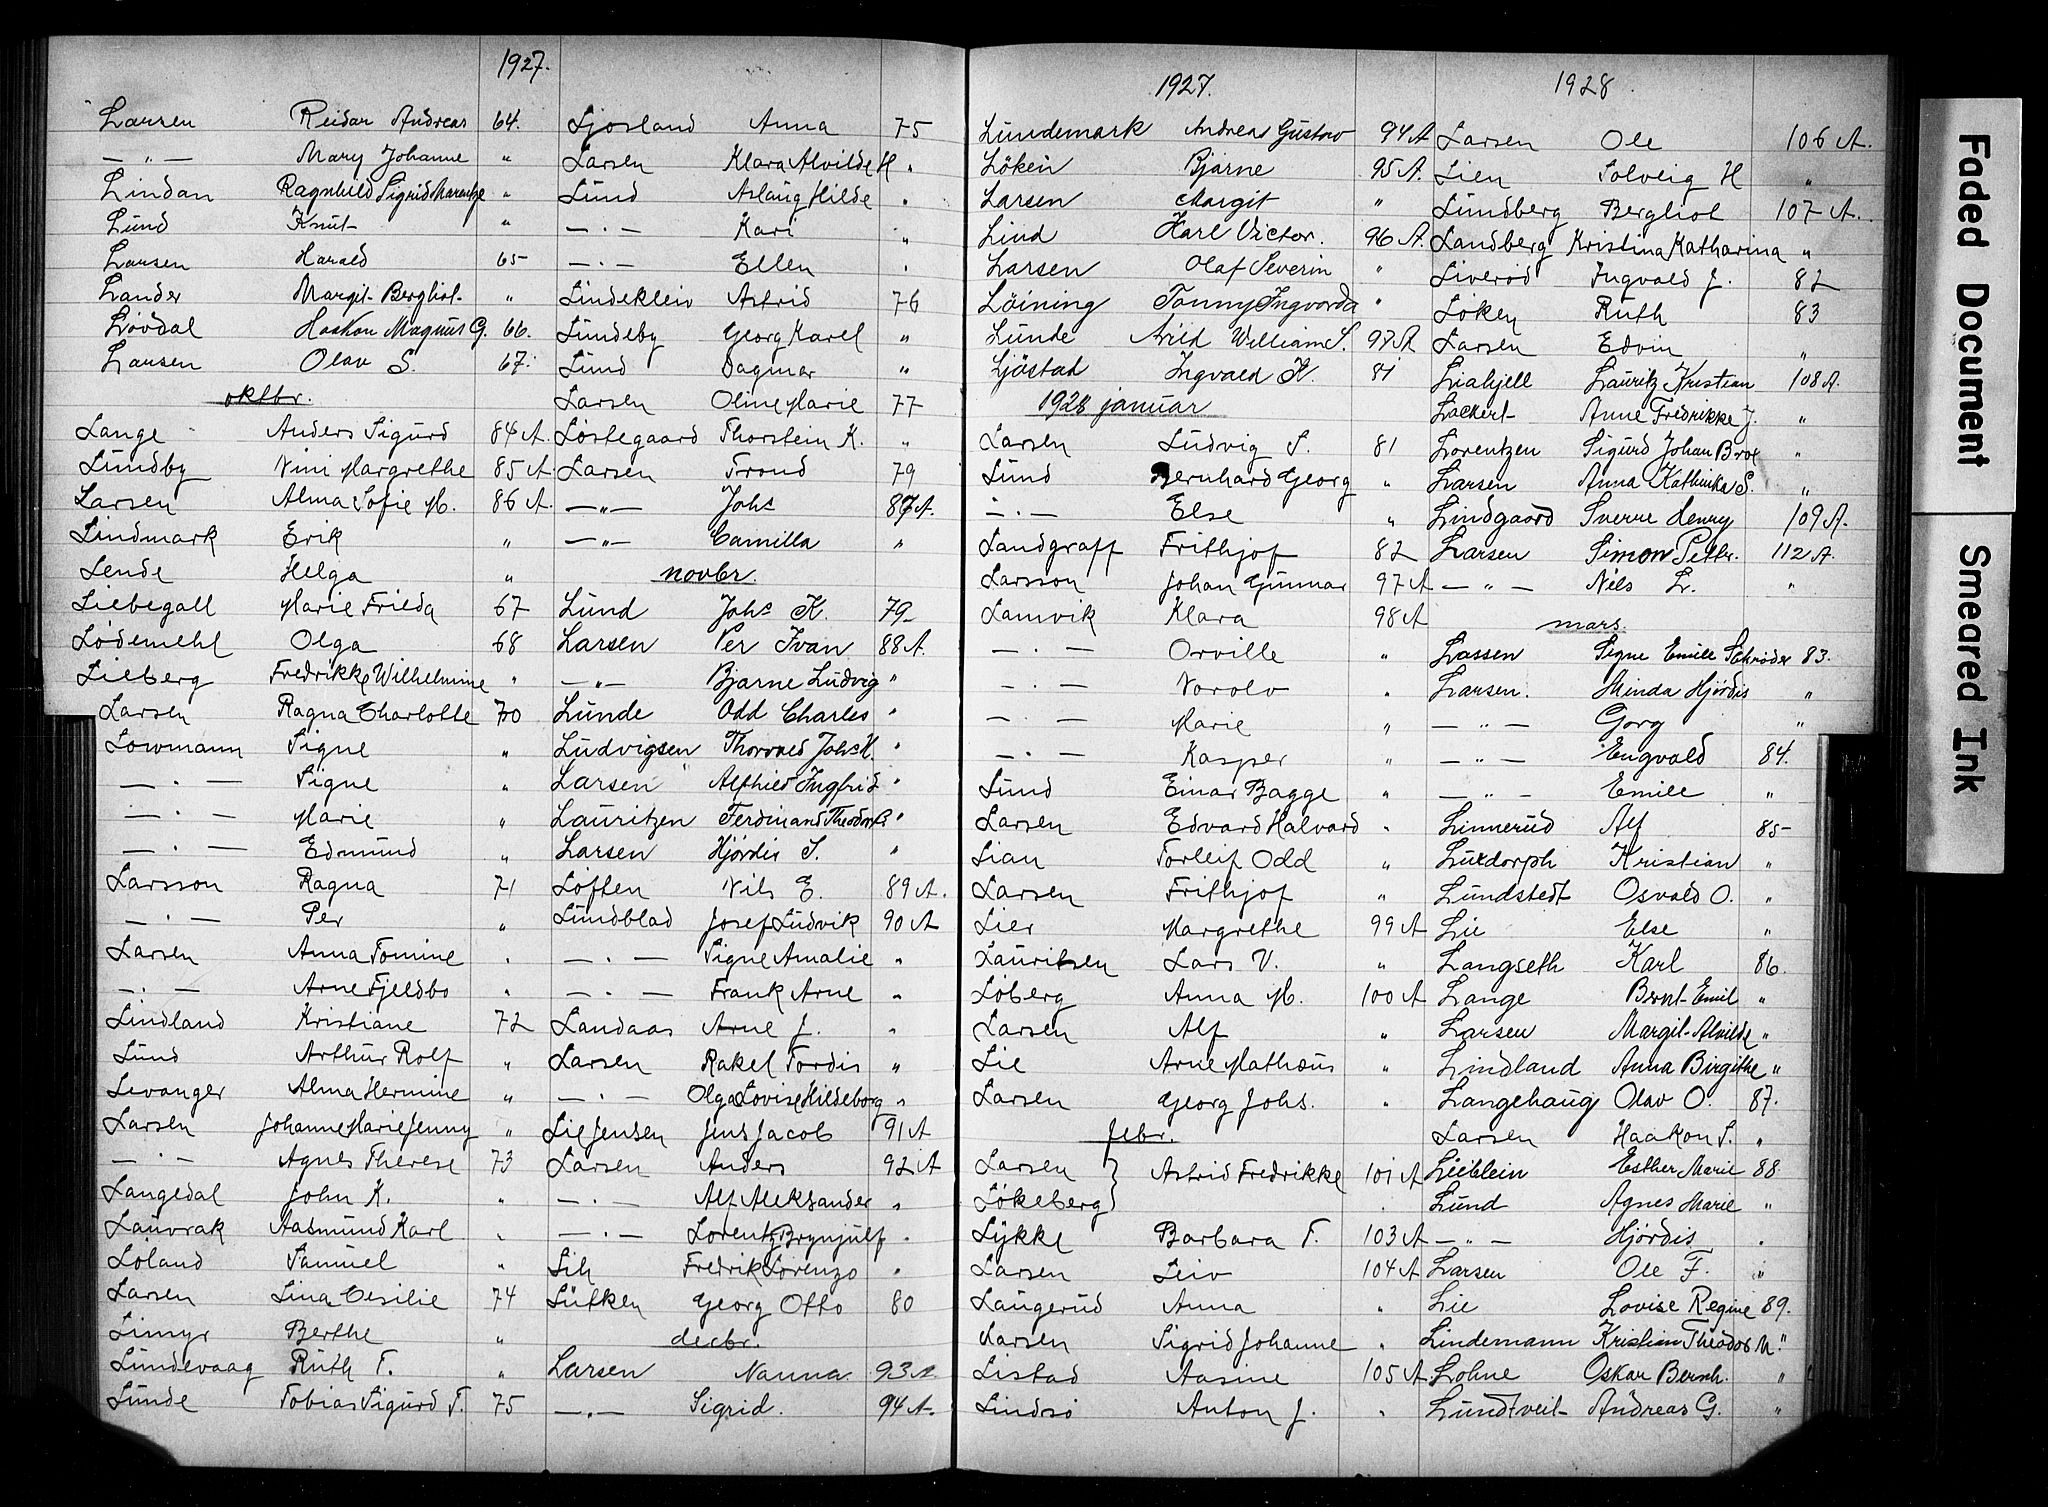 1927.
Larsen Reidar Andreas 64.
— " — Mary Johanne "
Lindan Ragnhild Sigrid Marentze "
Lund Knut "
Larsen Harald 65
Lander Margit Bergliot "
Løvdal Haakon Magnus G. 66.
Larsen Olav S. 67.
oktbr.
Lange Anders Sigurd 84 A.
Lundby Nini Margrethe 85 A.
Larsen Alma Sofie M. 86 A.
Lindmark Erik "
Lende Helga "
Liebegall Marie Frieda 67
Lødemehl Olga 68
Lieberg Fredrikke Wilhelmine "
Larsen Ragna Charlotte 70
Lowmann Signe "
— " — Signe "
— " — Marie "
— " — Edmund "
Larsson Ragna 71
— " — Per "
Larsen Anna Tomine "
— " — Arne Fjeldbo "
Lindland Kristiane 72
Lund Arthur Rolf "
Levanger Alma Hermine "
Larsen Johanne Marie Jenny "
— " — Agnes Therese 73
Langedal John K. "
Lauvrak Aasmund Karl "
Løland Samuel "
Larsen Lina Cesilie 74
Limyr Berthe "
Lundevaag Ruth T. "
Lunde Tobias Sigurd T. 75
Ljosland Anna 75
Larsen Klara Alvilde H "
Lund Aslaug Hilde "
— " — Kari "
— " — Ellen "
Lindekleiv Astrid 76
Lundeby Georg Karel "
Lund Dagmar "
Larsen Oline Marie 77
Løstegaard Thorstein K. "
Larsen Trond 79
— " — Johs 87 A.
— " — Camilla "
novbr.
Lund Johs K. 79
Larsen Per Ivan 88 A.
— " — Bjarne Ludvig "
Lunde Odd Charles "
Ludvigsen Thorvald Johs H. "
Larsen Alfhild Ingfrid "
Lauritzen Ferdinand Theodor "
Larsen Hjørdis S. "
Løften Nils E. 89 A.
Lundblad Josef Ludvik 90 A
— " — Signe Amalie "
— " — Frank Arne "
Landaas Arne J. "
Larsen Rakel Tordis "
— " — Olga Lovise Hildeborg "
Lie Jensen Jens Jacob 91 A
Larsen Anders 92 A
— " — Alf Aleksander "
— " — Lorentz Brynjulf "
Lih Fredrik Lorenzo "
Lütken Georg Otto 80
decbr.
Larsen Nanna 93 A.
— " — Sigrid. 94 A.
1927.
Lundemark Andreas Gustav 94 A
Løken Bjarne 95 A.
Larsen Margit "
Lind Karl Victor. 96 A.
Larsen Olaf Severin "
Löining Tommy Ingvarda "
Lunde Arild William S. 98 A
Ljøstad Ingvald K. 81
1928 januar
Larsen Ludvig S. 81
Lund Bernhard Georg "
— " — Else "
Landgraff Frithjof 82
Larsson Johan Gunnar 97 A
Lamvik Klara 98 A
— " — Orville "
— " — Norolv "
— " — Marie "
— " — Kasper "
Lund Einar Bagge "
Larsen Edvard Halvard "
Lian Torleif Odd "
Larsen Frithjof "
Lier Margrethe 99 A
Lauritsen Lars V. "
Løberg Anna M. 100 A
Larsen Alf "
Lie Arne Mathæus "
Larsen Georg Johs. "
febr.
Larsen } Astrid Fredrikke 101 A
Løkeberg }
Lykke Barbara T. 103 A
Larsen Leiv 104 A
Laugerud Anna "
Larsen Sigrid Johanne "
Listad Aasine 105 A
Lindsø Anton J. "
1928
Larsen Ole 106 A.
Lien Solveig H "
Lundberg Bergliot 107 A.
Landberg Kristina Katharina "
Liverød Ingvald J. 82
Løken Ruth 83
Larsen Edvin "
Liahjell Lauritz Kristian 108 A.
Lackert Anne Fredrikke J. "
Lorentzen Sigurd Johan "
Larsen Anna Kathinka S. "
Lindgaard Sverre Henry 109 A.
Larsen Simon Petter. 112 A.
— " — Nils L. "
mars.
Lassen Signe Emilie Schrøder 83.
Larsen. Minda Hjørdis "
— " — Gorg "
— " — Engvald 84.
— " — Emile "
Linnerud Alf 85
Luxdorph Kristian "
Lundstedt Osvald O. "
Lie Else "
Langseth Karl 86.
Lange Bernt Emil "
Larsen Margit Alvilde "
Lindland Anna Birgithe "
Langehaug Olav O. 87.
Larsen Haakon S. "
Lieblein Esther Marie 88.
Lund Agnes Marie "
— " — Hjørdis "
Larsen Ole F. "
Lie Lovise Regine 89.
Lindemann Kristian Theodor M. "
Lohne Oskar Bernh. "
Lundtveit Andreas G. "
Faded Document
Smeared Ink